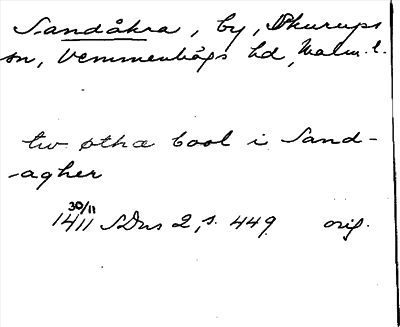 Sandåkra, by, Skurups
sn, Vemmenhögs hd, Malm. l.
tw øthæ bool i Sand-
-agher
30/11
1411 SDns 2, s. 449 orig.